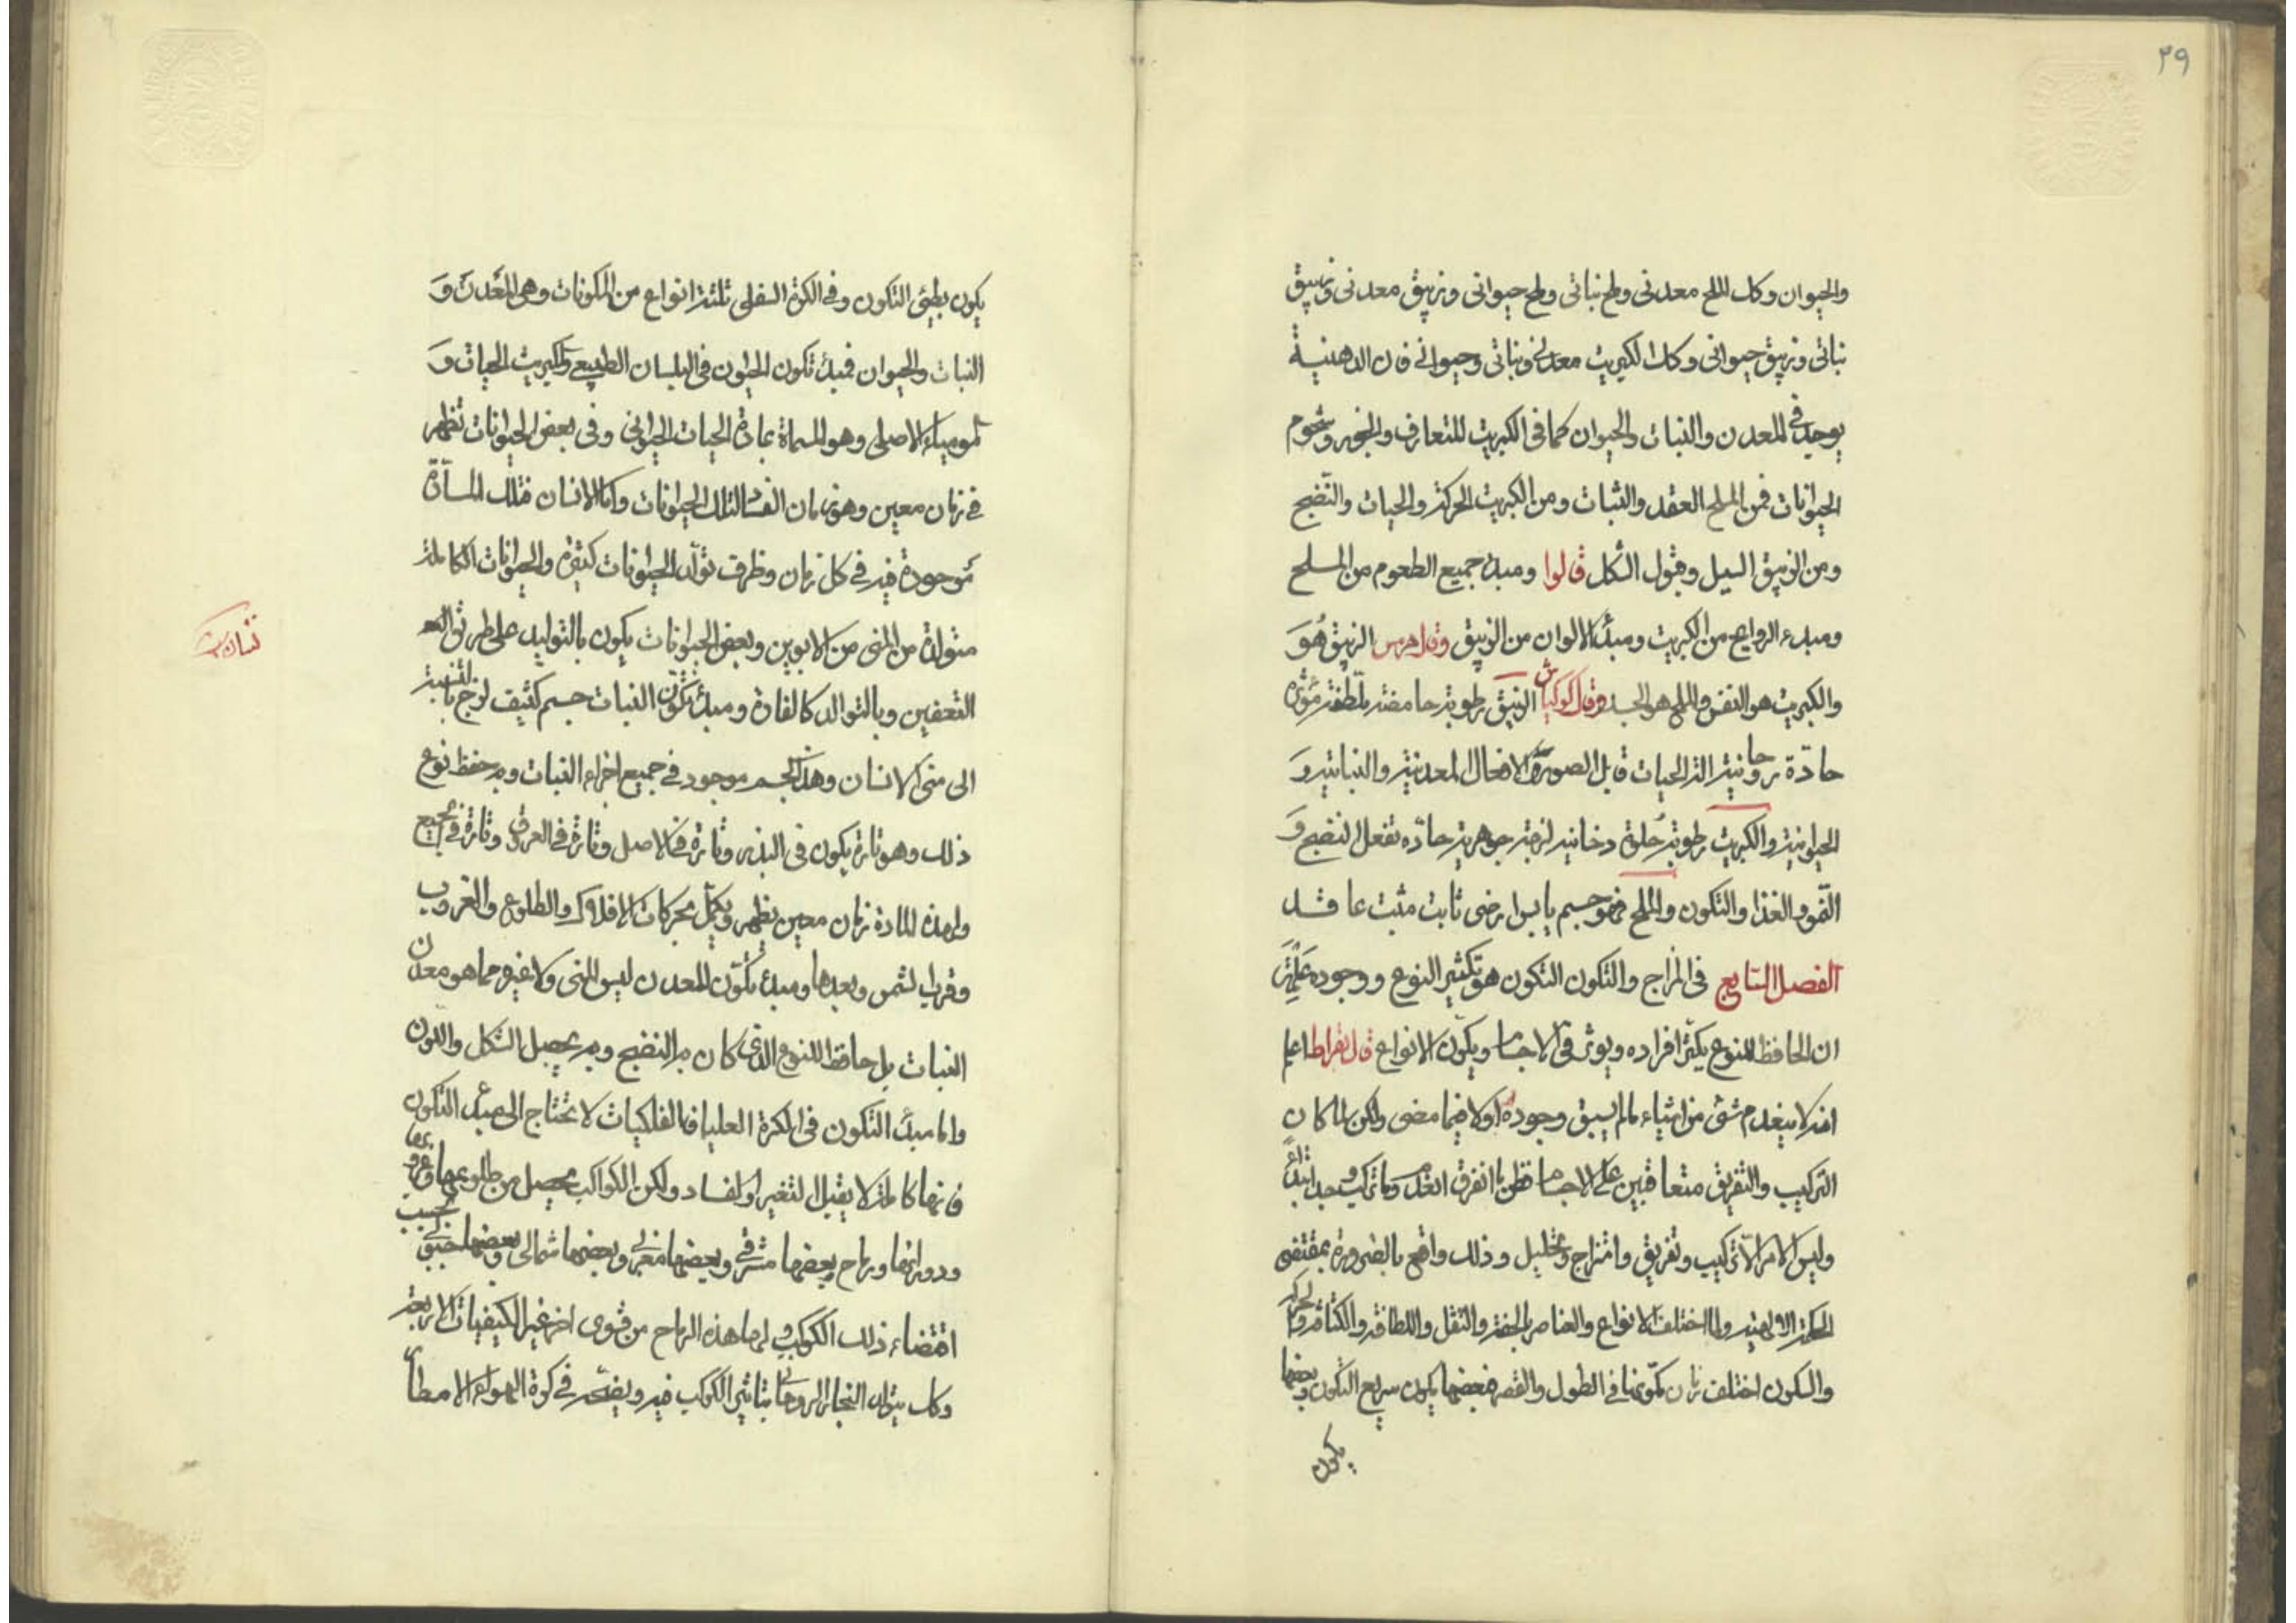 ٢٩
والحيوان وكك الملح معدنى وملح نباتى وملح حيوانى وزيبق معدنى وزيبق
نباتى وزيبق حيوانى وكك الكبريت معدنى ونباتى وحيوانى فان الدهنية
يوجد فى المعدن والنبات والحيوان كما فى الكبريت المتعارف والجوز وشحوم
الحيوانات فمن الملح العقد والثبات ومن الكبريت الحركة والحيات والنضج
ومن الزيبق السيل وقبول الشكل قالوا ومبدء جميع الطعوم من الملح
ومبدء الروايح من الكبريت ومبدأ الالوان من الزيبق وقال هرمس الزيبق هو
والكبريت هو النفس والملح هو الجسد وقال الزيبق رطوبة حامضة
حادة روحانية الة الحيات قابل الصورة والافعال المعدنية والنباتية و
الحيوانية والكبريت رطوبة حلوة دخانية لزجة جوهرية حادّه تفعل النضج و
النمو والغذا والتكون والملح فهو جسم يابس ارضى ثابت مثبت عاقد
الفصل السابع فى المزاج والتكون التكون هو تكثير النوع ووجوده
ان الحافظ للنوع يكثر افراده ويوثر فى الاجسام ويكون الانواع قال بقراط اعلم
انه لا ينعدم شئ من اشياء ما لم يسبق وجوده اولا فيما مضى ولكن لما كان
التركيب والتفريق متعاقبين على الاجسام فظن ما انفرق انعدم وما تركب وجد ابتداء
وليس الامر الّا تركيب وتفريق وامتزاج وتحليل وذلك واقع بالضرورة بمقتضى
الحكمة الالهية ولما اختلف الانواع والعناصر بالخفة والثقل واللطافة والكثافة والحركة
والسكون اختلف زمان تكونها فى الطول والقصر فبعضها يكون سريع التكون وبعضها
يكون
يكون بطيئ التكون وفى الكرة السفلى ثلثة انواع من المكونات وهى المعدن و
النبات والحيوان فمبدأ تكون الحيوان فى البلسان الطبيعى والكبريت الحيات و
الموميا الاصلى وهو المسماة بمادة الحيات الحيوانى وفى بعض الحيوانات تظهر
فى زمان معين وهو زمان لتلك الحيوانات واما الانسان فتلك المادّة
موجودة فيه فى كل زمان وظرف تولّد الحيوانات كثيرة والحيوانات الكاملة
متولدة من المنى من الابوين وبعض الحيوانات يكون بالتوليد على طريق
التعفين وبالتوالد كالفارة ومبدأ تكون النبات جسم كثيف لزج بالنسبة
الى منى الانسان وهذا الجسم موجود فى جميع اجزاء النبات وبه حفظ نوع
ذلك وهو تارة يكون فى البذر وتارة فى الاصل وتارة فى العرق وتارة فى الجميع
ولهذه المادة زمان معين يظهر ويكمل بحركات الافلاك والطلوع والغروب
وقرب الشمس وبعدها ومبدء تكون المعدن ليس المنى ولا غيره مما هو معدن
النبات بل حافظ النوع الذى كان به النضج وبه يحصل الشكل واللون
واما مبدأ التكون فى الكرة العليا فالفلكيات لا تحتاج الى مبدء التكون
فانها كاملة لا يقبل التغير والفساد ولكن الكواكب يحصل من طلوعها وغروبها
ودورانها رياح بعضها مشرقى وبعضها مغربى وبعضها شمالى وبعضها جنوبى بحسب
اقتضاء ذلك الكوكب ولها هذه الرياح من قوى اخر غير الكيفيات الاربعة
وكك يتولد البخار الروحانى بتاثير الكوكب فيه فى كرة الهواء الامطار